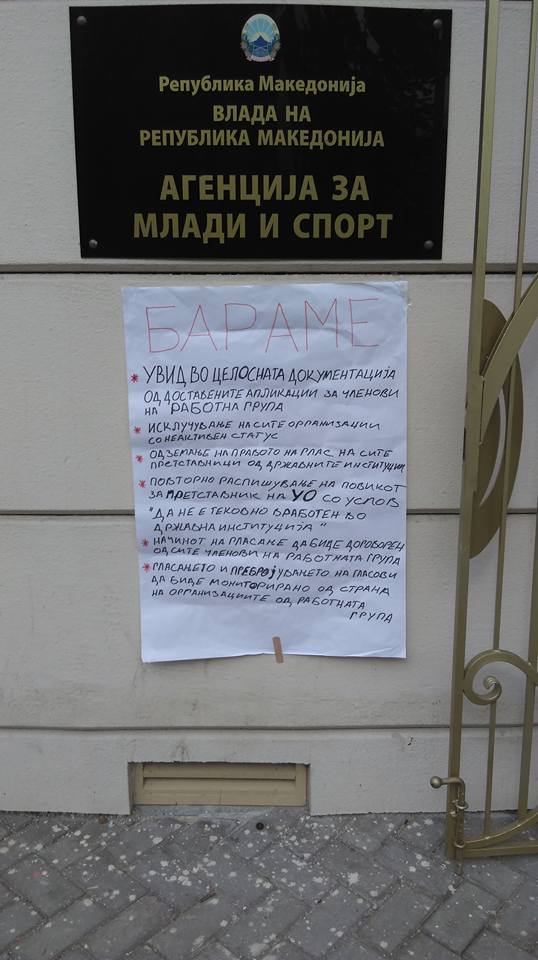 Република Македонија
ВЛАДА НА
РЕПУБЛИКА МАКЕДОНИЈА
АГЕНЦИЈА ЗА
МЛАДИ И СПОРТ
БАРАМЕ
* УВИД ВО ЦЕЛОСНАТА ДОКУМЕНТАЦИЈА
ОД ДОСТАВЕНИТЕ АПЛИКАЦИИ ЗА ЧЛЕНОВИ
НА РАБОТНА ГРУПА
* ИСКЛУЧУВАЊЕ НА СИТЕ ОРГАНИЗАЦИИ
СО НЕАКТИВЕН СТАТУС
* ОДЗЕМАЊЕ НА ПРАВОТО НА ГЛАС НА СИТЕ
ПРЕТСТАВНИЦИ ОД ДРЖАВНИТЕ ИНСТИТУЦИИ
* ПОВТОРНО РАСПИШУВАЊЕ НА ПОВИКОТ
ЗА ПРЕТСТАВНИК НА УО СО УСЛОВ
"ДА НЕ Е ТЕКОВНО ВРАБОТЕН ВО
ДРЖАВНА ИНСТИТУЦИЈА"
* НАЧИНОТ НА ГЛАСАЊЕ ДА БИДЕ ДОГОВОРЕН
ОД СИТЕ ЧЛЕНОВИ НА РАБОТНАТА ГРУПА
* ГЛАСАЊЕТО И ПРЕБРОЈУВАЊЕТО НА ГЛАСОВИ
ДА БИДЕ МОНИТОРИРАНО ОД СТРАНА
НА ОРГАНИЗАЦИИТЕ ОД РАБОТНАТА
ГРУПА